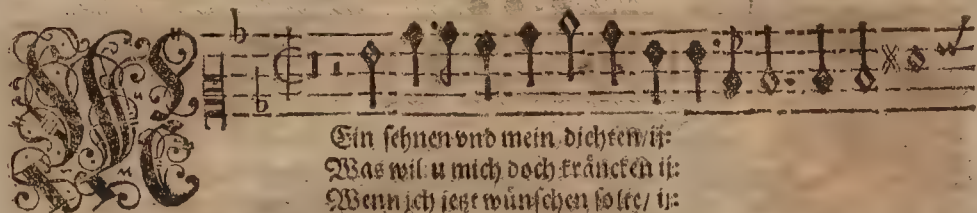 MEin sehnen vnd mein dichten/ ij:
Was wil u mich doch kräncken ij:
Wenn ich jetzt wünschen solte/ ij: